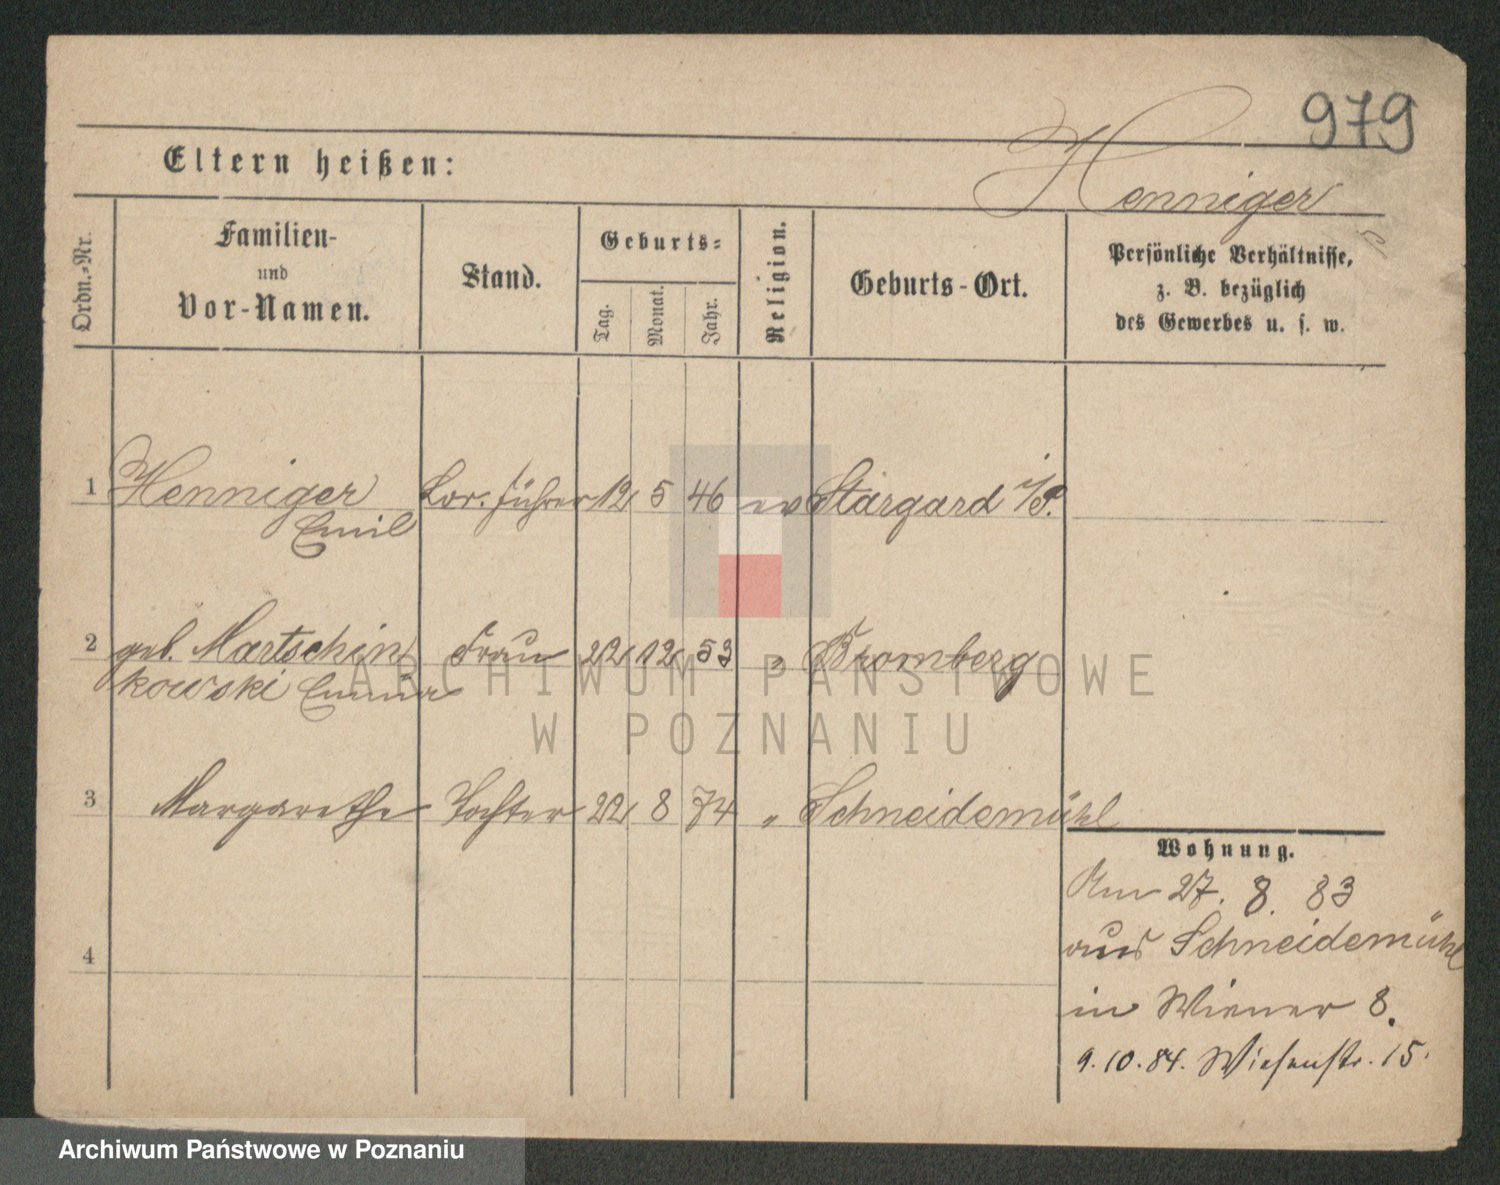 979
Eltern heißen:
Henniger
Ordn.-Nr.
Familien-
und
Vor-Namen.
Stand.
Geburts-
Tag.
Monat.
Jahr.
Religion.
Geburts-Ort.
Persönliche Verhältnisse,
z. B. bezüglich
des Gewerbes u. s. w.
1 Henniger Lor. führer 12 5 46 ev Stargard i/P.
Emil
2 geb. Martschin Frau 22 12 53 " Bromberg
kowski Emma
ARCHIWUM PAŃSTWOWE
W POZNANIU
3 Margarethe Tochter 22 8 74 " Schneidemühl
Wohnung.
Am 27. 8. 83
aus Schneidemühl
4
in Wiener 8.
9.10.84. Wiesenstr. 15.
Archiwum Państwowe w Poznaniu